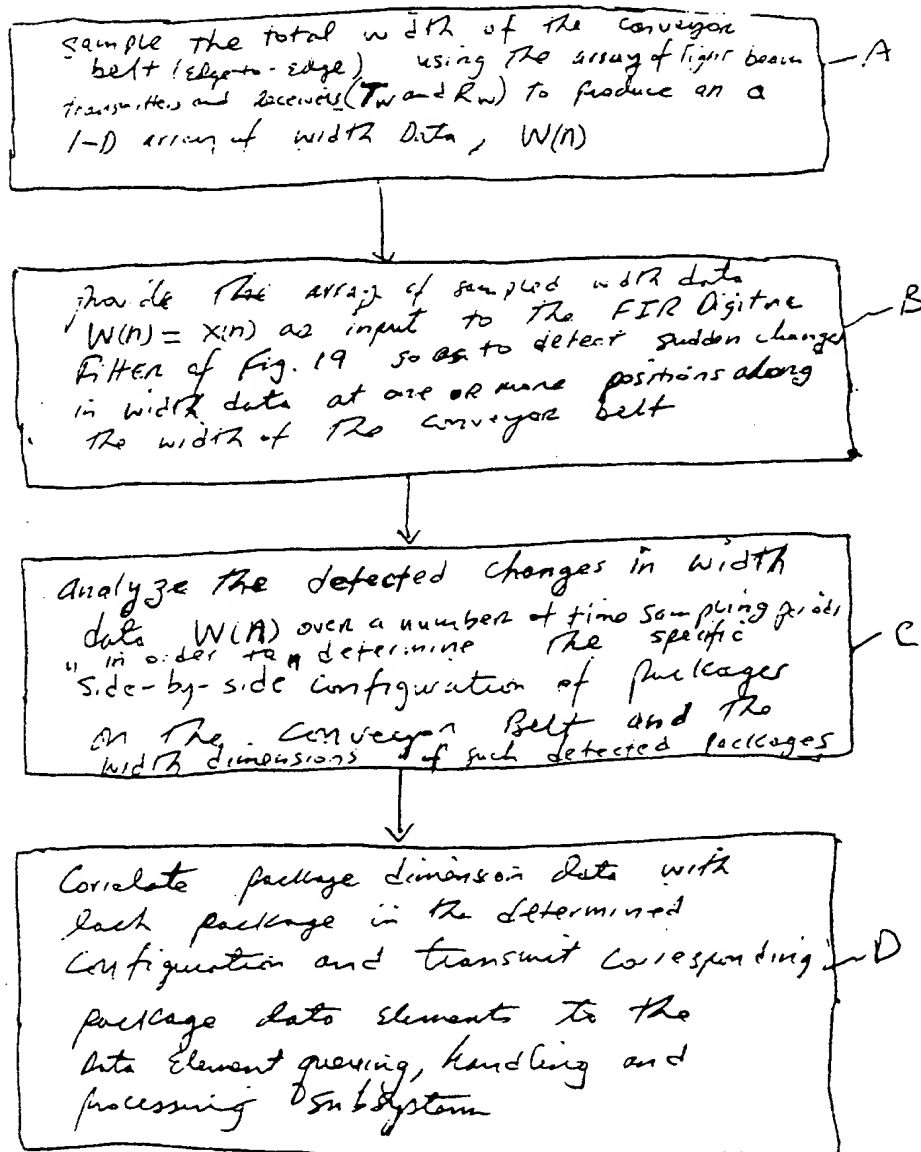 Sample the total width of the conveyor
belt (Edge-to-Edge) using the array of light beam
transmitters and receivers (Tw and Rw) to produce an a
1-D array of width Data, W(n)
A
provide this array of sampled width data
W(n) = X(n) as input to the FIR Digital
Filter of Fig. 19 so as to detect sudden changes
in width data at one or more positions along
the width of the conveyor belt
B
analyze the detected changes in width
data W(n) over a number of time sampling periods
"in order to" determine the specific
"side-by-side" configuration of packages
on the Conveyor Belt and the
width dimensions of such detected packages
C
Correlate package dimension data with
each package in the determined
configuration and transmit corresponding
package data elements to the
Data Element queuing, handling and
processing subsystem
D